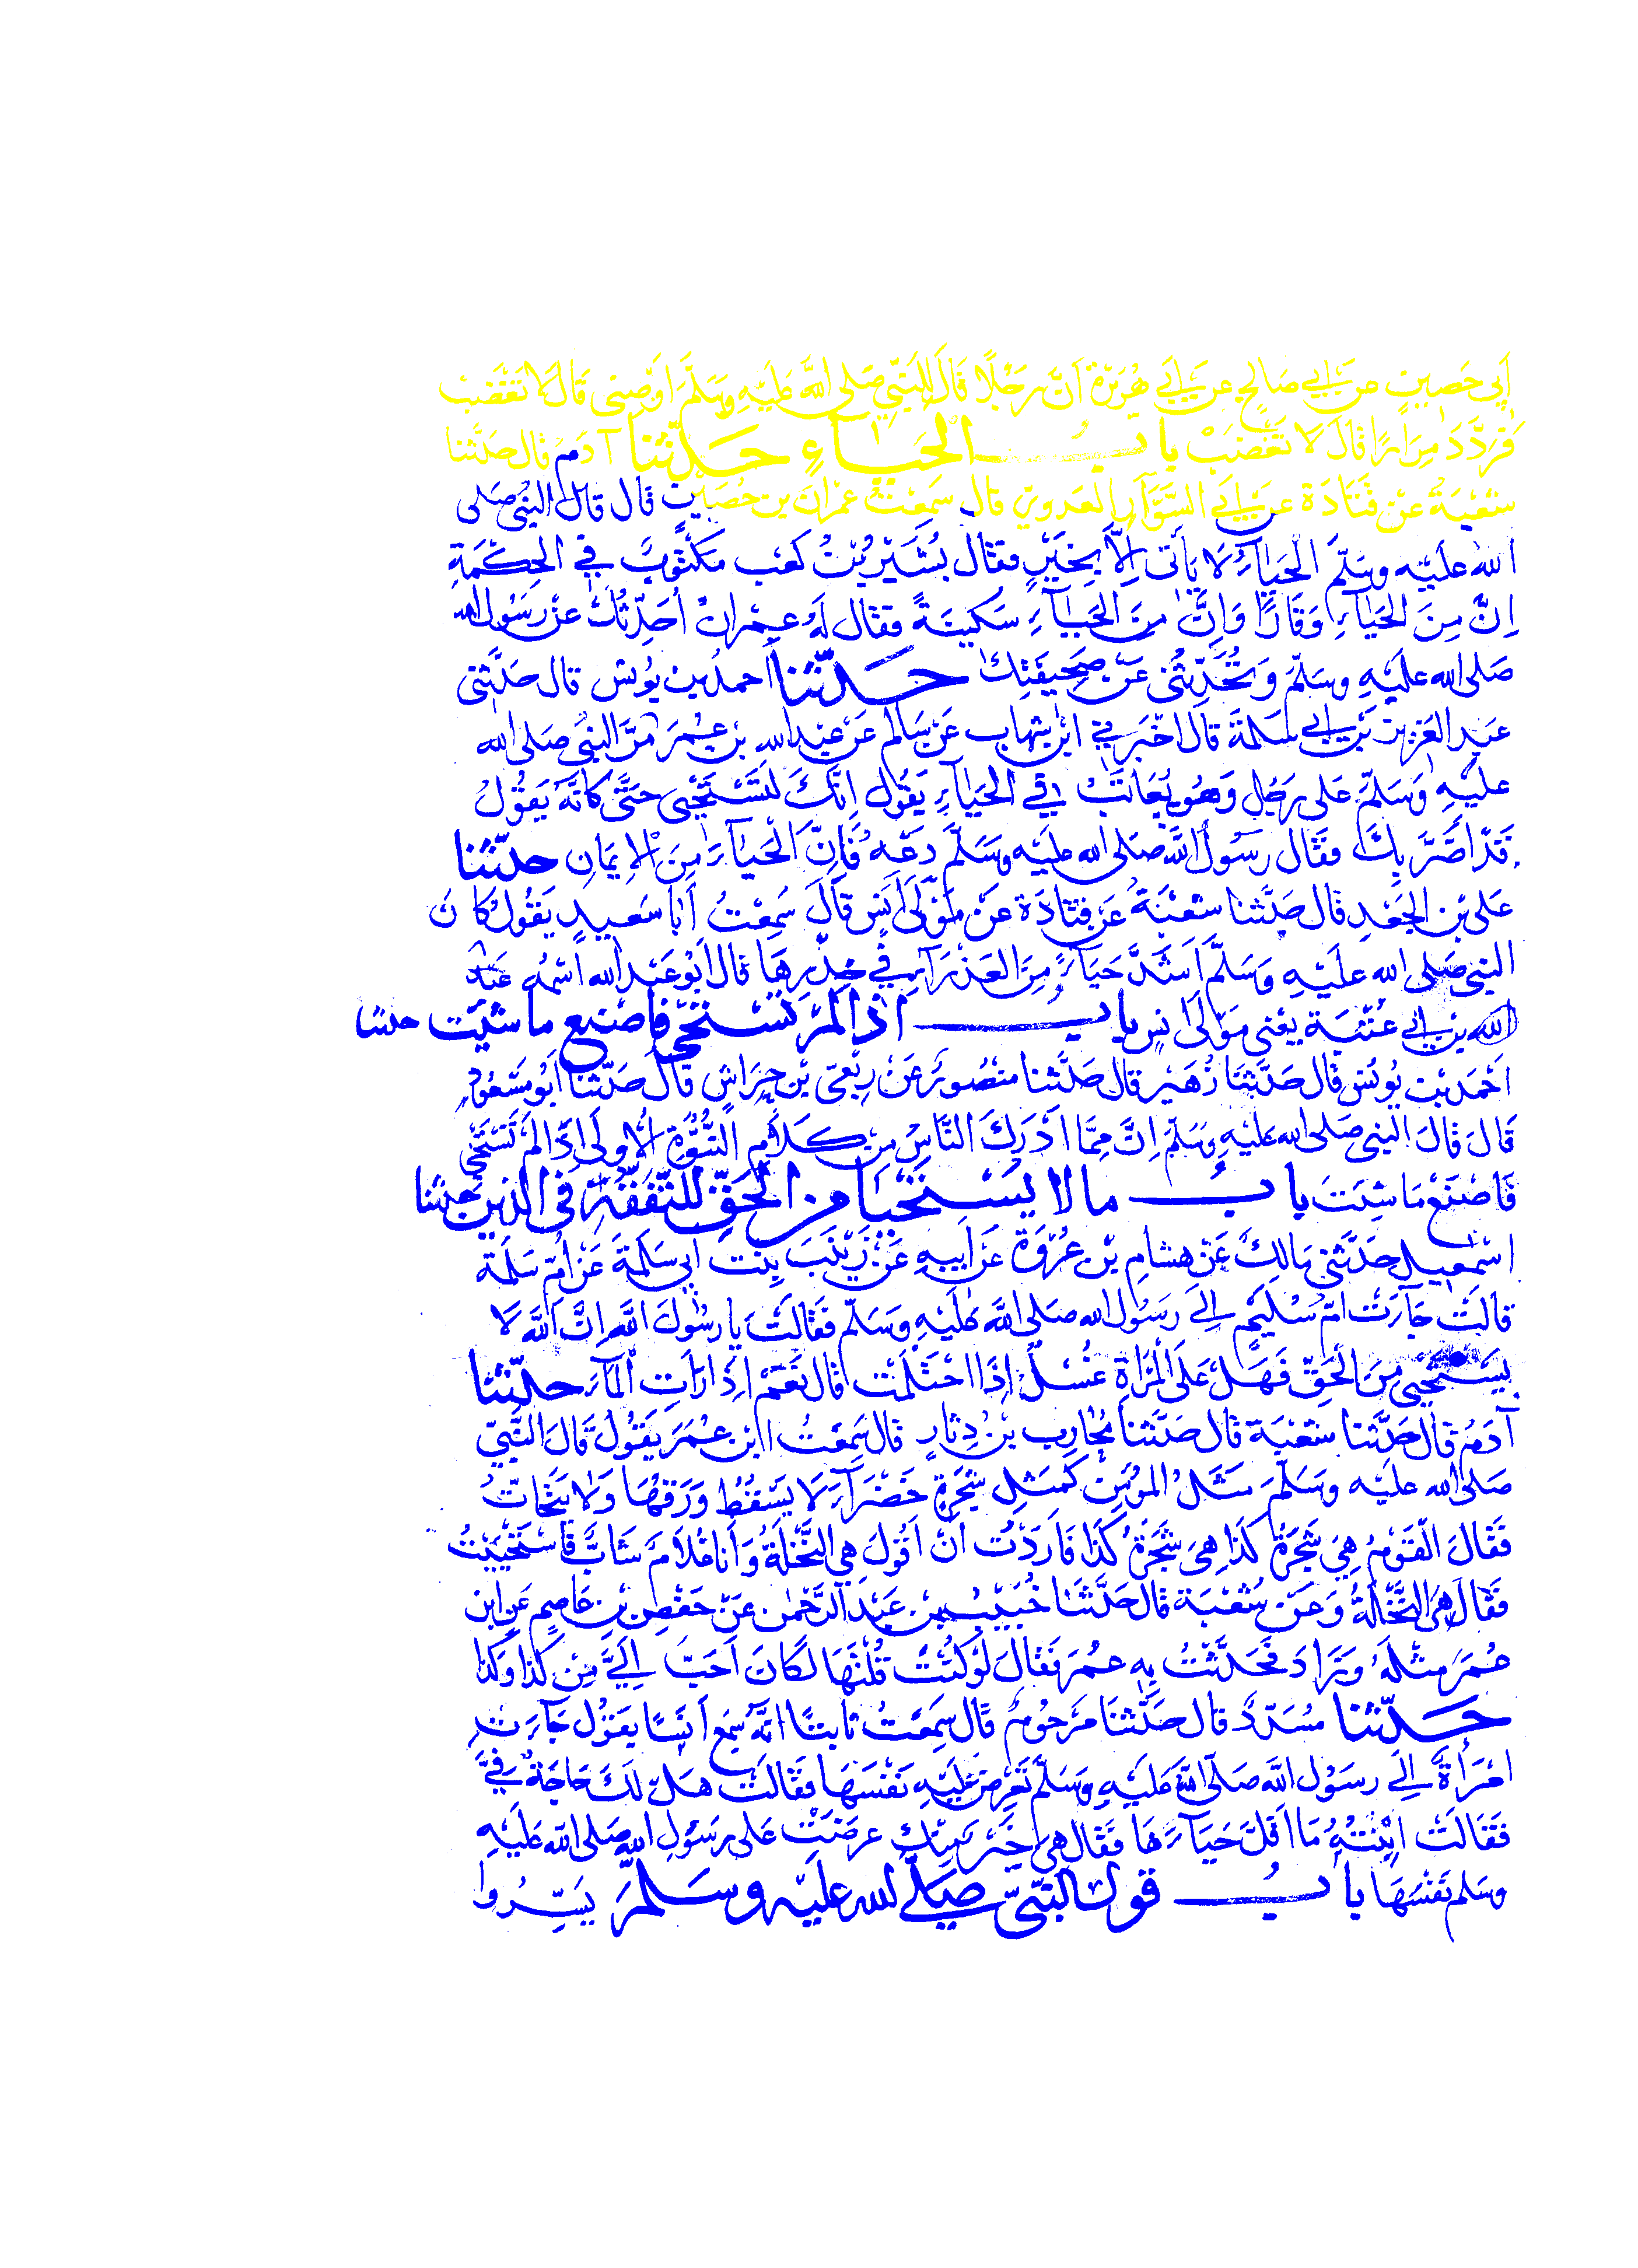 أَبِي حَصِينٍ عن أبي صَالحٍ عن أبي هُرَيْرَةَ أَنَّ رَجُلًا قَالَ لِلنَّبِيِّ صَلى اللهُ عَلَيْهِ وَسَلَّمَ اَوْصِنِى قَالَ لَا تَغْضَبْ
فَرَدَّدَ مِرَارًا قَالَ لَا تَغْضَبْ بابُ الحَيَاءِ حَدَّثنا آدَمُ قال حدَّثنا
شعْبَةُ عَنْ قَتَادَةَ عن أبي السَّوَّارِ العَدَوِيّ قال سَمِعْتُ عمْرَانَ بن حُصَيْنٍ قال قال النبىُّ صَلى
اللهُ عَلَيْهِ وسَلَّمَ الحَيَاءُ لَا يَأتى إِلَّا بِخَيْرٍ فقال بُشَيْرُ بْنُ كَعْب مَكْتُوبٌ فِي الحِكْمَةِ
اِنَّ مِنَ الحَيَاءِ وَقَارًا وَاِنَّ مِنَ الحَيَاءِ سَكِينَةً فقال لَهُ عِمْرانُ أُحَدِّثُكَ عَنْ رسُول الله
صَلى الله عَلَيْهِ وسَلّمَ وَتُحَدِّثُنِى عَنْ صَحِيفَتِكَ حَدَّثنا احمدُ بن يُونس قال حَدَّثنى
عَبدِ العَزِيز بْن أبي سَلَمَةَ قال اخْبَرَنِي ابْن شِهَاب عَنْ سَالم عَنْ عَبْدِ اللهِ بْن عُمَرَ مَرَّ النبىُّ صَلى الله
عَلَيْهِ وَسَلَّمَ عَلى رَجُلٍ وَهُوَ يُعَاتَبُ فِي الحَيَاءِ يَقُولُ اِنَّكَ لَتَسْتَحْيِى حَتَّى كَاَنَّهُ يَقُولُ
قَدْ أَضَرَّ بِكَ فقال رَسُولُ اللهِ صَلى الله عليه وسَلَّمَ دَعْهُ فَإِنَّ الحَيَاءَ مِنَ الْإِيمَانِ حدّثنا
عَلى بن الجَعْدِ قال حَدَّثنا شعْبَةُ عَنْ قتَادَةَ عن مَوْلَى أَنَس قَالَ سَمِعْتُ أَبَا سَعِيدٍ يَقُولُ كانَ
النبى صَلى الله عليه وَسَلَّمَ اَشَدَّ حَيَاءً مِنَ العَذْرَاءِ فِي خِدْرِهَا قال أَبُو عَبْد الله اسْمُهُ عَبْدُ
الله بن أبي عُتْبَةَ يعْنى مَوْلَى انسٍ بابُ اذا لَمْ تَسْتَحْىِ فاصْنَع ما شئت حدثنا
اَحْمَد بْن يُونُسَ قال حَدَّثَنَا زُهَيْر قال حَدَّثنا منصُورٌ عَنْ رِبْعِىّ بْن حِرَاشٍ قال حَدَّثنا اَبُو مَسْعُودٍ
قَالَ قَالَ النبى صَلى الله عَلَيْهِ وسَلَّمَ اِنَّ مِمَّا اَدْرَكَ النَّاسُ مِنْ كَلَامِ النُّبُوَّةِ الْأُولَى اِذَا لَمْ تَسْتَحْىِ
فَاصْنَعْ مَا شِئتَ بابُ ما لا يُسْتَحْيَا من الحَقِّ للتَّفَقُّهِ فى الدّين حدثنا
اسْمعيل حَدَّثَنى مَالِكٌ عَنْ هشامِ بْن عُرْوَةَ عَنْ اَبِيهِ عَنْ زَيْنَبَ بِنْت ابى سَلَمَةَ عَنْ اُمّ سَلَمَةَ
قَالَتْ جَاءَتْ امّ سُلَيْمٍ اِلَى رَسُول الله صَلى اللهُ عَلَيْهِ وَسَلّم فَقَالَتْ يا رسُولَ اللهِ اِنَّ اللهَ لَا
يَسْتَحْيِى مِنَ الحَقّ فَهَلْ عَلَى المَرْأَةِ غُسْلٌ اِذَا احْتَلَمَتْ قال نَعَمْ اِذَا رَاَتِ المَاءَ حدّثنا
آدَمُ قال حَدَّثَنا شعْبَة قال حَدَّثنا مُحَارِب بْنُ دِثَارٍ قال سَمِعْتُ ابْنَ عُمَرَ يَقُولُ قَالَ النَّبِيّ
صَلى الله عَلَيْهِ وسَلَّمَ مَثَلُ المُؤْمِنِ كَمَثَلِ شَجَرَةٍ خَضْرَاءَ لَا يَسْقُطُ وَرَقُهَا وَلَا يَتَحَاتُّ
فَقَالَ الْقَوْمُ هِيَ شَجَرَةُ كَذَا هِىَ شَجَرَةُ كَذَا فَارَدْتُ اَنْ اَقُولَ هِي النَّخْلَةُ وَأَنَا غُلَامٌ شَابٌّ فَاسْتَحْيَيْتُ
فَقَالَ هِىَ النَّخْلَةُ وَعَنْ شُعْبَة قال حَدَّثَنَا خُبَيْبُ بن عَبْدِ الرَّحْمن عَنْ حَفْصِ بْنِ عَاصِمٍ عَنِ ابْن
عُمَرَ مِثْلَهُ وَزَادَ فَحَدَّثْتُ بِهِ عُمَرَ فَقَالَ لَوْ كُنْتَ قُلْتَهَا لَكَانَ اَحَبَّ اِلَىَّ مِنْ كَذا وَكَذا
حَدّثنا مُسَدَّدٌ قال حَدَّثنَا مَرْحُومٌ قَال سَمِعْتُ ثَابتًا انّهُ سَمِعَ اَنَسًا يَقُولُ جَاءَتِ
امْرَأَةٌ اِلَى رسُول اللهِ صَلى اللهُ عَلَيْهِ وَسَلَّمَ تَعْرِضُ عَلَيْهِ نَفْسَهَا فقالَتْ هَلْ لَكَ حَاجَةٌ فِيَّ
فَقَالَتْ ابْنَتُهُ مَا اَقَلَّ حَيَاءَهَا فَقَالَ هِىَ خَيْرٌ مِنْكِ عَرَضَتْ عَلى رَسُولِ اللهِ صَلى الله عَلَيْهِ
وسَلم نَفْسَهَا بابُ قول النّبىّ صَلَّى الله عليه وسَلَّمَ يَسِّرُوا